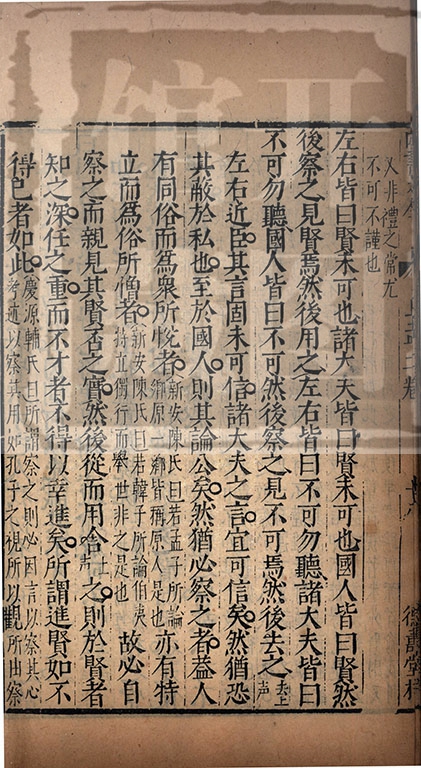 又非禮之常尤
不可不謹也
左右皆曰賢未可也諸大夫皆曰賢未可也國人皆曰賢然
後察之見賢焉然後用之左右皆曰不可勿聽諸大夫皆曰
不可勿聽國人皆曰不可然後察之見不可焉然後去之去上聲
左右近臣其言固未可信諸大夫之言宜可信矣然猶恐
其蔽於私也至於國人則其論公矣然猶必察之者蓋人
有同俗而爲衆所悅者新安陳氏曰若孟子所論鄉原一鄉皆稱原人是也亦有特
立而爲俗所憎者新安陳氏曰若韓子所論伯夷特立獨行而舉世非之是也故必自
察之而親見其賢否之實然後從而用舍上聲之則於賢者
知之深任之重而不才者不得以幸進矣所謂進賢如不
得已者如此慶源輔氏曰所謂察之則必因言以察其心考迹以察其用如孔子之視所以觀所由察
德壽堂梓